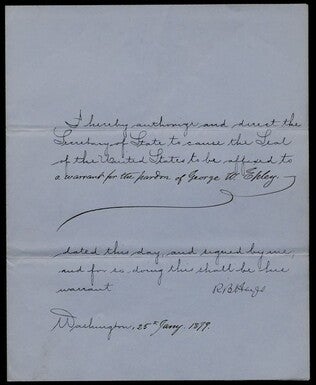 I hereby authorize and direct the
Secretary of State to cause the Seal
of the United States to be affixed to
a warrant for the pardon of George W. Epley
dated this day, and signed by me,
and for so doing this shall be his
warrant
R.B. Hayes
Washington, 25th Jany. 1879.